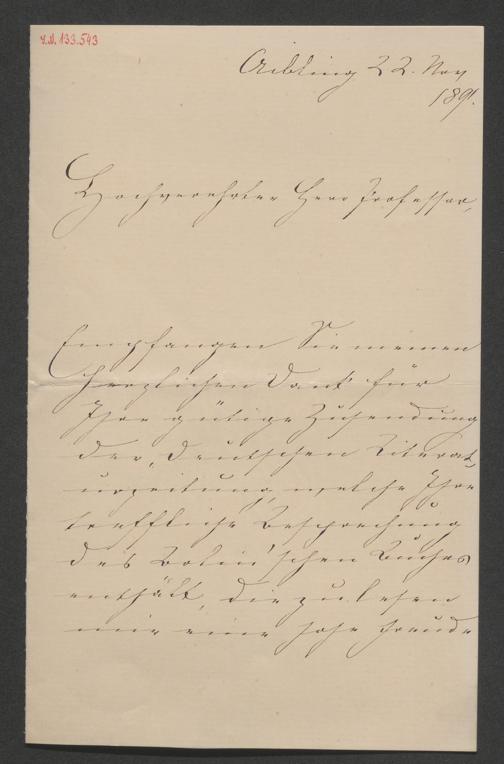 I.N. 133.543
Aibling 22. Nov
1891.
Hochverehrter Herr Professor,
Empfangen Sie meinen
herzlichen Dank für
Ihre gütige Zusendung
der „Deutschen Literat
urzeitung“, welche Ihre
treffliche Besprechung
des Bolin'schen Buches
enthält, die zu lesen
mir eine hohe Freude